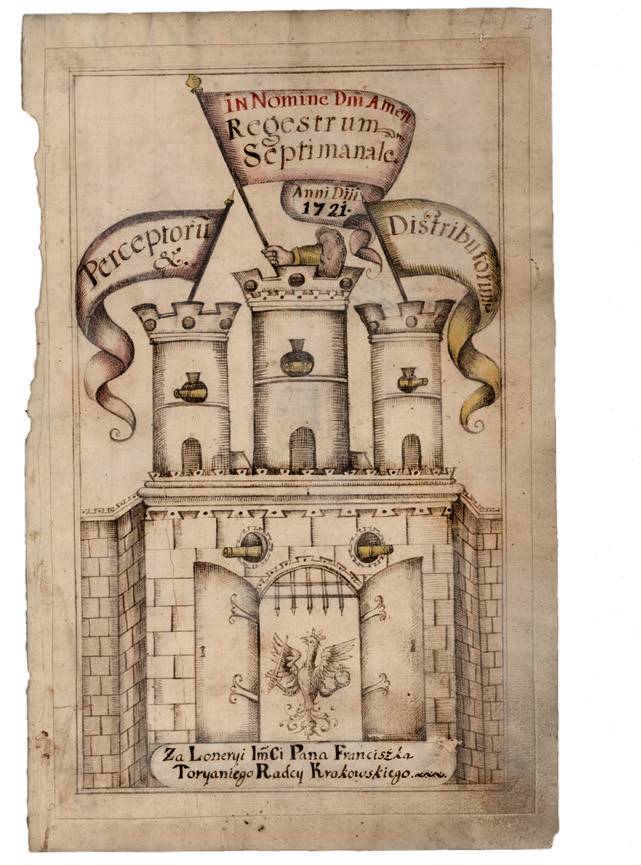 IN Nomine Dm̄i Amen
Regestrum
Septimanale.
Anni Dm̄i
1721.
Perceptorū
&.
Distributorum
Za Loneryi Im̄Ci Pana Franciszka
Toryaniego Radcy Krakowskiego.